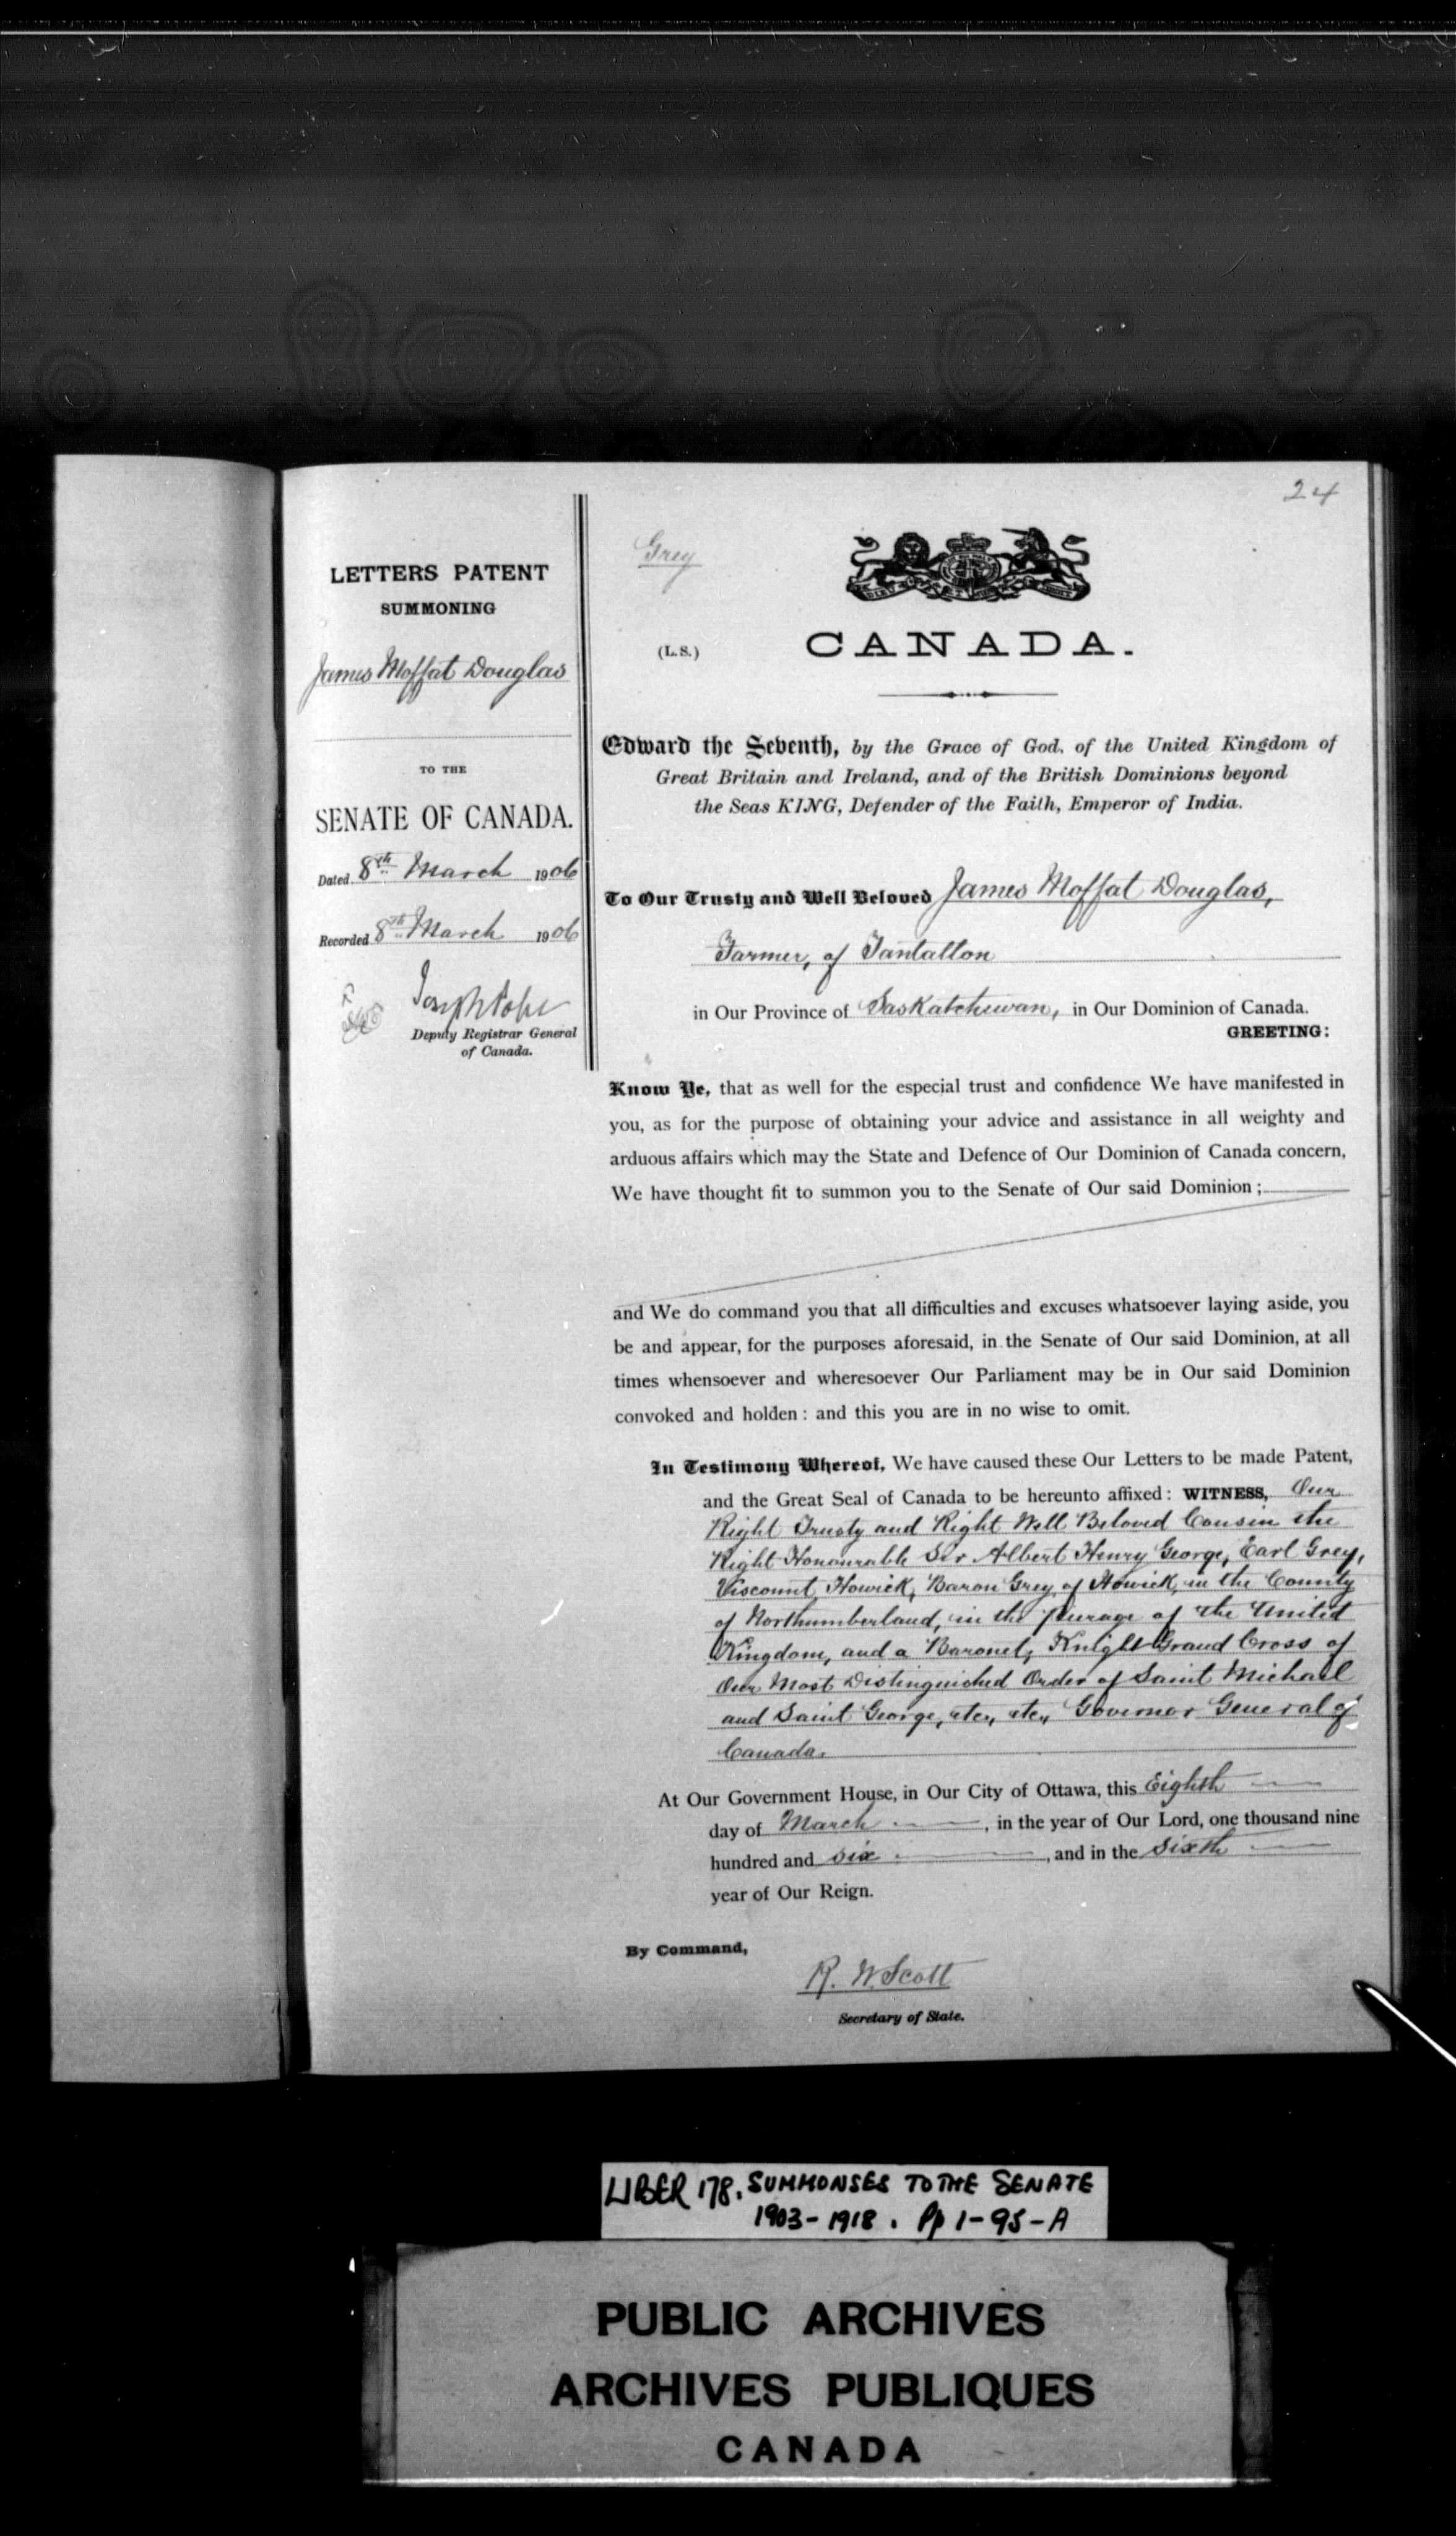 24
LETTERS PATENT
SUMMONING
James Moffat Douglas
TO THE
SENATE OF CANADA.
Dated 8th March 1906
Recorded 8th March 1906
Joseph Pope
Deputy Registrar General
of Canada.
Grey
(L.S.)
CANADA.
Edward the Seventh, by the Grace of God, of the United Kingdom of
Great Britain and Ireland, and of the British Dominions beyond
the Seas KING, Defender of the Faith, Emperor of India.
To Our Trusty and Well Beloved James Moffat Douglas,
Farmer, of Tantallon
in Our Province of Saskatchewan, in Our Dominion of Canada.
GREETING:
Know Ye, that as well for the especial trust and confidence We have manifested in
you, as for the purpose of obtaining your advice and assistance in all weighty and
arduous affairs which may the State and Defence of Our Dominion of Canada concern,
We have thought fit to summon you to the Senate of Our said Dominion;
and We do command you that all difficulties and excuses whatsoever laying aside, you
be and appear, for the purposes aforesaid, in the Senate of Our said Dominion, at all
times whensoever and wheresoever Our Parliament may be in Our said Dominion
convoked and holden: and this you are in no wise to omit.
In Testimony Whereof, We have caused these Our Letters to be made Patent,
and the Great Seal of Canada to be hereunto affixed: WITNESS, Our
Right Trusty and Right Well Beloved Cousin the
Right Honourable Sir Albert Henry George, Earl Grey,
Viscount Howick, Baron Grey of Howick, in the County
of Northumberland, in the Peerage of the United
Kingdom, and a Baronet; Knight Grand Cross of
Our Most Distinguished Order of Saint Michael
and Saint George, etc., etc., Governor General of
Canada.
At Our Government House, in Our City of Ottawa, this Eighth
day of March, in the year of Our Lord, one thousand nine
hundred and six, and in the Sixth
year of Our Reign.
By Command,
R. W. Scott
Secretary of State.
LIBER 178. SUMMONSES TO THE SENATE
1903-1918. Pp 1-95-A
PUBLIC ARCHIVES
ARCHIVES PUBLIQUES
CANADA